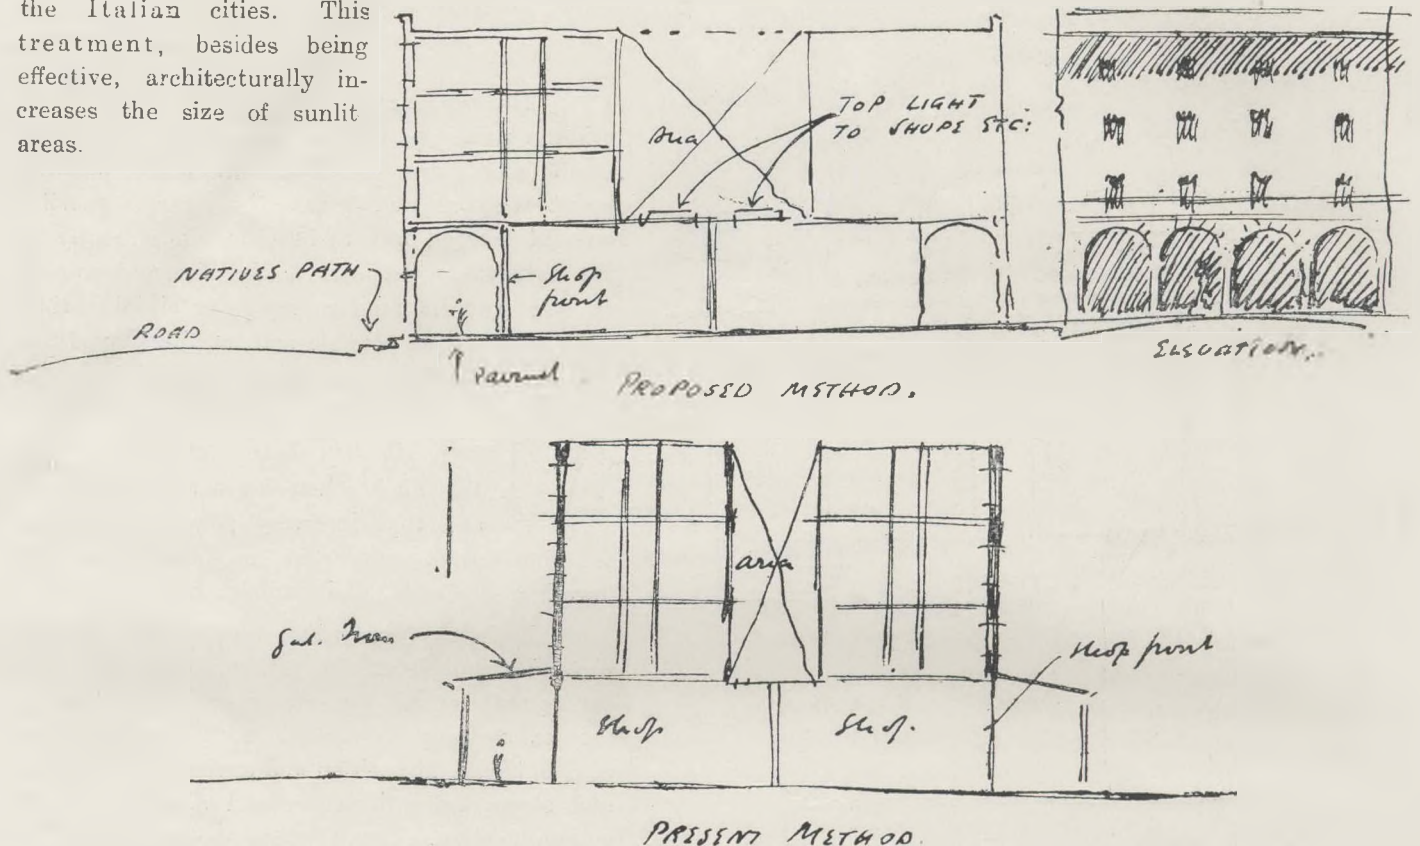 the Italian cities. This
treatment, besides being
effective, architecturally in-
creases the size of sunlit
areas.
TOP LIGHT
TO SHOPS ETC:
area
NATIVES PATH
Shop
front
ROAD
ELEVATION.
PROPOSED METHOD.
area
shop front
Shop
Shop.
PRESENT METHOD.